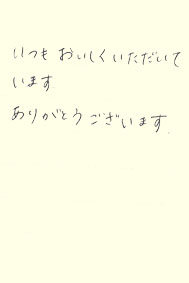 いつも おいしくいただいて
います.
ありがとうございます.